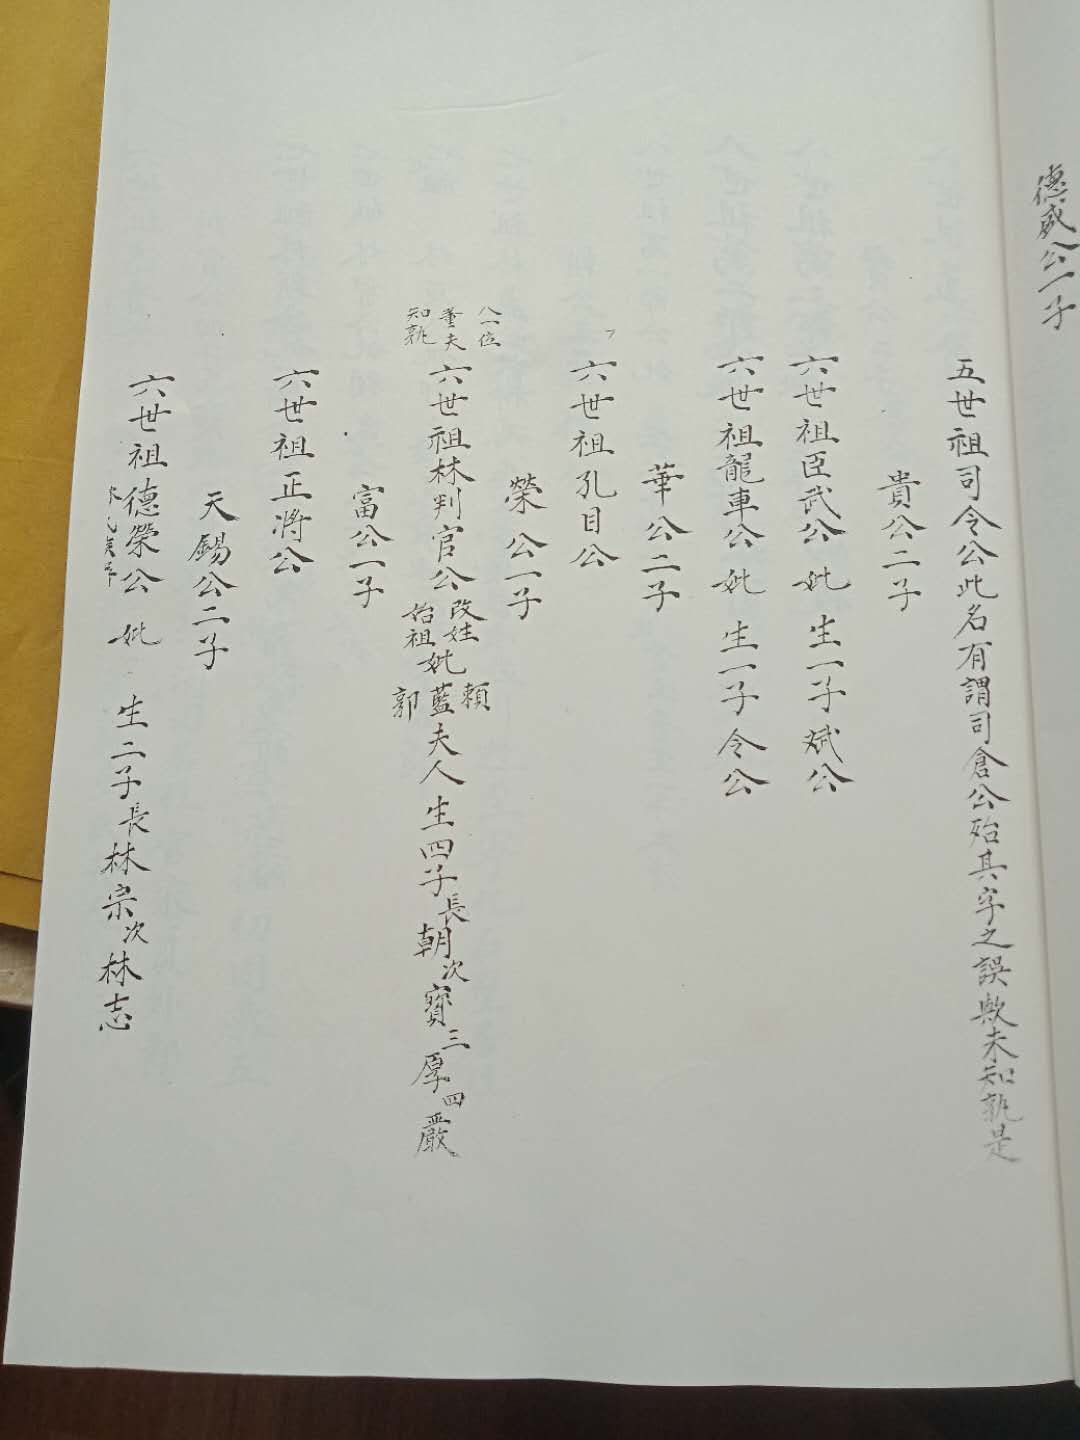 德威公一子
五世祖司令公此名有謂司倉公殆其字之誤歟未知孰是
貴公二子
六世祖臣武公 妣 生一子斌公
六世祖龍車公 妣 生一子令公
華公二子
六世祖孔目公
榮公一子
八一位
董夫
知孰
六世祖林判官公改姓始祖妣賴藍郭夫人生四子長朝次寶三厚四嚴
富公一子
六世祖正將公
天錫公二子
六世祖德榮公 妣 生二子長林宗次林志